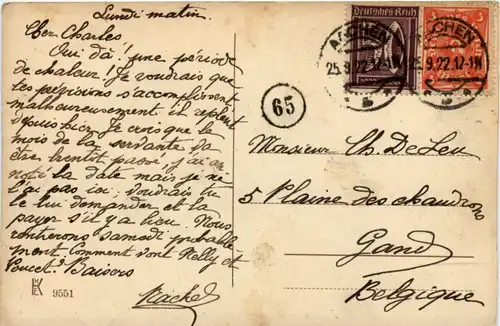 Lundi matin.
Cher Charles
Oui dà! une période
de chaleur! Je voudrais que
les prévisions s'accomplissent
malheureusement il repleut
depuis hier. Je crois que le
mois de la servante va
être bientôt passé, j'ai en
noté la date mais je ne
l'ai pas ici. Voudrais tu
le lui demander et la
payer s'il y a lieu. Nous
rentrerons samedi probable
ment. Comment vont Nelly et
Poucet? Baisers
Rachel
9551
65
Deutsches Reich
AACHEN
25.9.22.12-1N
AACHEN
25.9.22.12-1N
Monsieur Ch. De Leu
5 Plaine des chaudrons
Gand
Belgique